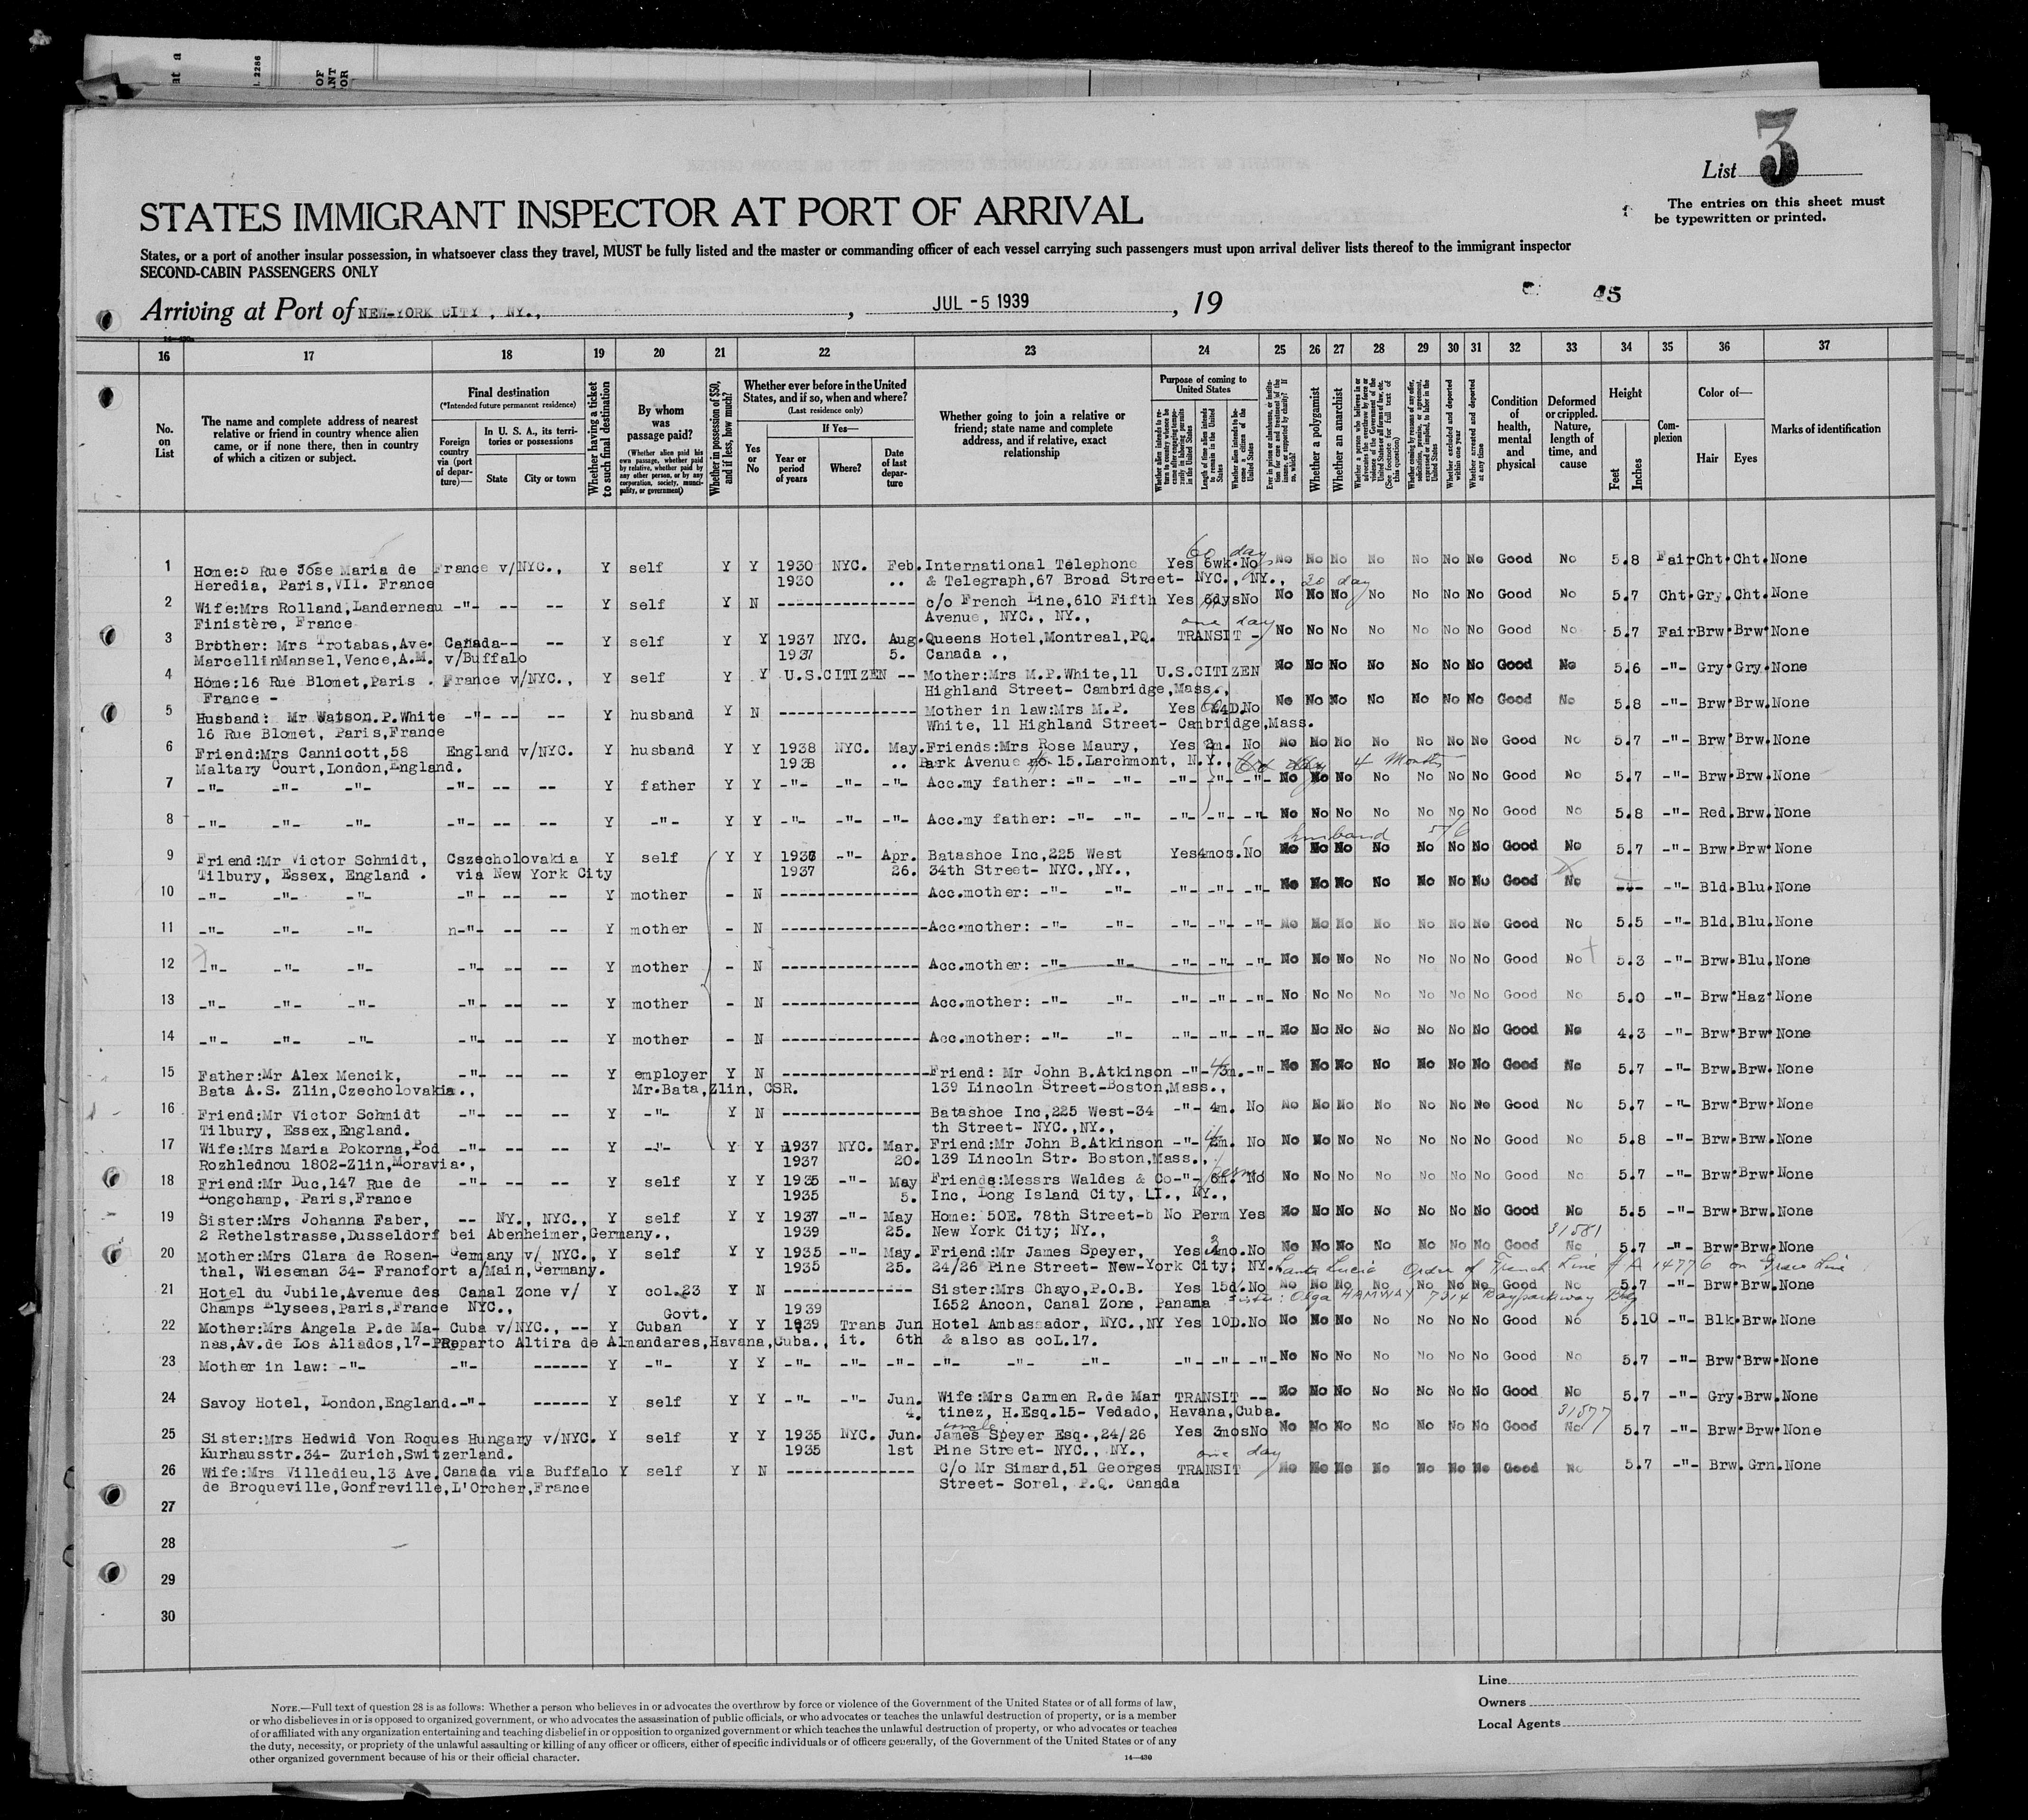 List 3
The entries on this sheet must
be typewritten or printed.
STATES IMMIGRANT INSPECTOR AT PORT OF ARRIVAL
States, or a port of another insular possession, in whatsoever class they travel, MUST be fully listed and the master or commanding officer of each vessel carrying such passengers must upon arrival deliver lists thereof to the immigrant inspector
SECOND-CABIN PASSENGERS ONLY
Arriving at Port of NEW-YORK CITY, NY., , JUL -5 1939 , 19
45
16 17 18 19 20 21 22 23 24 25 26 27 28 29 30 31 32 33 34 35 36 37
No. on List
The name and complete address of nearest relative or friend in country whence alien came, or if none there, then in country of which a citizen or subject.
Final destination
(*Intended future permanent residence)
Foreign country via (port of departure)—
In U. S. A., its territories or possessions
State
City or town
Whether having a ticket to such final destination
By whom was passage paid?
(Whether alien paid his own passage, whether paid by relative, whether paid by any other person, or by any corporation, society, municipality, or government)
Whether in possession of $50, and if less, how much?
Whether ever before in the United States, and if so, when and where?
(Last residence only)
Yes or No
If Yes—
Year or period of years
Where?
Date of last departure
Whether going to join a relative or friend; state name and complete address, and if relative, exact relationship
Purpose of coming to United States
Length of time alien intends to remain in the United States
Whether alien intends to become a citizen of the United States
Whether a polygamist
Whether an anarchist
Whether excluded and deported within one year
Whether arrested and deported at any time
Condition of health, mental and physical
Deformed or crippled. Nature, length of time, and cause
Height
Feet
Inches
Complexion
Color of—
Hair
Eyes
Marks of identification
60 days
1 Home:5 Rue Jose Maria de France v/NYC., Y self Y Y 1930 NYC. Feb. International Telephone Yes 6wk. No No No No No No No No Good No 5.8 Fair Cht. Cht. None
Heredia, Paris,VII. France 1930 .. & Telegraph,67 Broad Street- NYC., NY.,
20 day
2 Wife:Mrs Rolland,Landerneau -"- -- -- Y self Y N ---------------- c/o French Line,610 Fifth Yes 6dys No No No No No No No No Good No 5.7 Cht. Gry. Cht. None
Finistère, France Avenue, NYC., NY.,
one day
3 Brother: Mrs Trotabas,Ave. Canada-- -- Y self Y Y 1937 NYC. Aug. Queens Hotel,Montreal,PQ. TRANSIT - No No No No No No No Good No 5.7 Fair Brw. Brw. None
MarcellinMansel,Vence,A.M. v/Buffalo 1937 5. Canada .,
4 Home:16 Rue Blomet,Paris . France v/NYC., Y self Y Y U.S.CITIZEN -- Mother:Mrs M.P.White,11 U.S.CITIZEN No No No No No No No Good No 5.6 -"- Gry. Gry. None
France - Highland Street- Cambridge,Mass.,
5 Husband: Mr Watson.P.White -"- -- -- Y husband Y N ---------------- Mother in law:Mrs M.P. Yes No No No No No No No No Good No 5.8 -"- Brw. Brw. None
16 Rue Blomet, Paris,France White, 11 Highland Street- Cambridge,Mass.
6 Friend:Mrs Cannicott,58 England v/NYC. Y husband Y Y 1938 NYC. May. Friends:Mrs Rose Maury, Yes 2m. No No No No No No No No Good No 5.7 -"- Brw. Brw. None
Maltary Court,London,England. 1938 .. Park Avenue no 15.Larchmont, N.Y.,
4 Months
7 -"- -"- -"- -"- -- -- Y father Y Y -"- -"- -"- Acc.my father: -"- -"- -"- -"- -"- No No No No No No No Good No 5.7 -"- Brw. Brw. None
8 -"- -"- -"- -"- -- -- Y -"- Y Y -"- -"- -"- Acc.my father: -"- -"- -"- -"- -"- No No No No No No No Good No 5.8 -"- Red. Brw. None
husband 5/6
9 Friend:Mr Victor Schmidt, Cszecholovakia Y self Y Y 1936 -"- Apr. Batashoe Inc,225 West Yes 4mos. No No No No No No No No Good No 5.7 -"- Brw. Brw. None
Tilbury, Essex, England . via New York City 1937 26. 34th Street- NYC.,NY.,
10 -"- -"- -"- -"- -- -- Y mother - N ---------------- Acc.mother: -"- -"- -"- -"- -"- No No No No No No No Good No --- -"- Bld. Blu. None
11 -"- -"- -"- n-"- -- -- Y mother - N ---------------- Acc.mother: -"- -"- -"- -"- -"- No No No No No No No Good No 5.5 -"- Bld. Blu. None
12 -"- -"- -"- -"- -- -- Y mother - N ---------------- Acc.mother: -"- -"- -"- -"- -"- No No No No No No No Good No 5.3 -"- Brw. Blu. None
13 -"- -"- -"- -"- -- -- Y mother - N ---------------- Acc.mother: -"- -"- -"- -"- -"- No No No No No No No Good No 5.0 -"- Brw. Haz. None
14 -"- -"- -"- -"- -- -- Y mother - N ---------------- Acc.mother: -"- -"- -"- -"- -"- No No No No No No No Good No 4.3 -"- Brw. Brw. None
15 Father:Mr Alex Mencik, -"- -- -- Y employer Y N ---------------- Friend: Mr John B.Atkinson -"- -"- No No No No No No No Good No 5.7 -"- Brw. Brw. None
Bata A.S. Zlin,Czecholovakia., Mr.Bata,Zlin, CSR. 139 Lincoln Street-Boston,Mass.,
16 Friend:Mr Victor Schmidt -"- -- -- Y -"- Y N ---------------- Batashoe Inc,225 West-34 -"- 4m. No No No No No No No No Good No 5.7 -"- Brw. Brw. None
Tilbury, Essex,England. th Street- NYC.,NY.,
17 Wife:Mrs Maria Pokorna,Pod -"- -- -- Y -"- Y Y 1937 NYC. Mar. Friend:Mr John B.Atkinson -"- No No No No No No No No Good No 5.8 -"- Brw. Brw. None
Rozhlednou 1802-Zlin,Moravia., 1937 20. 139 Lincoln Str. Boston,Mass.,
perm
18 Friend:Mr Duc,147 Rue de -"- -- -- Y self Y Y 1935 -"- May Friends:Messrs Waldes & Co -"- 6m. No No No No No No No No Good No 5.7 -"- Brw. Brw. None
Longchamp, Paris,France 1935 5. Inc, Long Island City, LI., NY.,
19 Sister:Mrs Johanna Faber, -- NY., NYC., Y self Y Y 1937 -"- May Home: 50E. 78th Street-b No Perm Yes No No No No No No No Good No 5.5 -"- Brw. Brw. None
2 Rethelstrasse,Dusseldorf bei Abenheimer,Germany., 1939 25. New York City; NY.,
31581
20 Mother:Mrs Clara de Rosen- Germany v/ NYC., Y self Y Y 1935 -"- May. Friend:Mr James Speyer, Yes 3 mo. No No No No No No No No Good No 5.7 -"- Brw. Brw. None
thal, Wieseman 34- Francfort a/Main,Germany. 1935 25. 24/26 Pine Street- New-York City; NY.
Santa Lucia Order of French Line # A 14776 on Grace Line
21 Hotel du Jubile,Avenue des Canal Zone v/ Y col.23 Y N ---------------- Sister:Mrs Chayo,P.O.B. Yes 15d. No No No No No No No No Good No 5.7 -"- Brw. Brw. None
Champs Elysees,Paris,France NYC., 1939 1652 Ancon, Canal Zone, Panama
Sister: Olga HAMWAY 7314 Bayparkway Bklg
22 Mother:Mrs Angela P.de Ma- Cuba v/NYC., -- Y Govt. Cuban Y Y 1939 Trans Jun Hotel Ambassador, NYC.,NY Yes 10D. No No No No No No No No Good No 5.10 -"- Blk. Brw. None
nas,Av.de Los Aliados,17- Reparto Altira de Almandares,Havana,Cuba., it. 6th & also as coL.17.
23 Mother in law: -"- -"- ------ Y -"- Y Y -"- -"- -"- -"- -"- -"- -"- -"- -"- No No No No No No No Good No 5.7 -"- Brw. Brw. None
24 Savoy Hotel, London,England. -"- ------ Y self Y Y -"- -"- Jun. Wife:Mrs Carmen R.de Mar TRANSIT -- No No No No No No No Good No 5.7 -"- Gry. Brw. None
4. tinez, H.Esq.15- Vedado, Havana,Cuba.
31577
uncle
25 Sister:Mrs Hedwid Von Roques Hungary v/NYC. Y self Y Y 1935 NYC. Jun. James Speyer Esq.,24/26 Yes 3mos No No No No No No No No Good No 5.7 -"- Brw. Brw. None
Kurhausstr.34- Zurich,Switzerland. 1935 1st Pine Street- NYC., NY.,
one day
26 Wife:Mrs Villedieu,13 Ave. Canada via Buffalo Y self Y N --------------- C/o Mr Simard,51 Georges TRANSIT No No No No No No No Good No 5.7 -"- Brw. Grn. None
de Broqueville,Gonfreville,L'Orcher,France Street- Sorel, P.Q. Canada
27
28
29
30
Line
Owners
Local Agents
NOTE.—Full text of question 28 is as follows: Whether a person who believes in or advocates the overthrow by force or violence of the Government of the United States or of all forms of law,
or who disbelieves in or is opposed to organized government, or who advocates the assassination of public officials, or who advocates or teaches the unlawful destruction of property, or is a member
of or affiliated with any organization entertaining and teaching disbelief in or opposition to organized government or which teaches the unlawful destruction of property, or who advocates or teaches
the duty, necessity, or propriety of the unlawful assaulting or killing of any officer or officers, either of specific individuals or of officers generally, of the Government of the United States or of any
other organized government because of his or their official character.
14—430